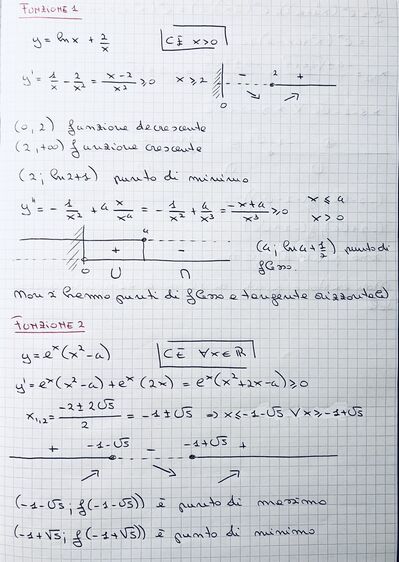 FUNZIONE 1
y = ln x + 2/x   CE x>0
y' = 1/x - 2/x² = x-2/x² ≥ 0   x ≥ 2   -   2   +
0
(0, 2) funzione decrescente
(2, +∞) funzione crescente
(2; ln2+1) punto di minimo
y'' = -1/x² + 4 x/x⁴ = -1/x² + 4/x³ = -x+4/x³ ≥ 0   x ≤ 4
x > 0
4
+   -   (4; ln4 + 1/2) punto di
0   ∪   ∩   flesso.
Non ci sono punti di flesso a tangente orizzontale
FUNZIONE 2
y = eˣ(x²-4)   CE ∀x∈ℝ
y' = eˣ(x²-4) + eˣ(2x) = eˣ(x²+2x-4) ≥ 0
x₁,₂ = -2 ± 2√5/2 = -1 ± √5 ⇒ x ≤ -1-√5 ∨ x ≥ -1+√5
+   -1-√5   -   -1+√5   +
(-1-√5; f(-1-√5)) è punto di massimo
(-1+√5; f(-1+√5)) è punto di minimo